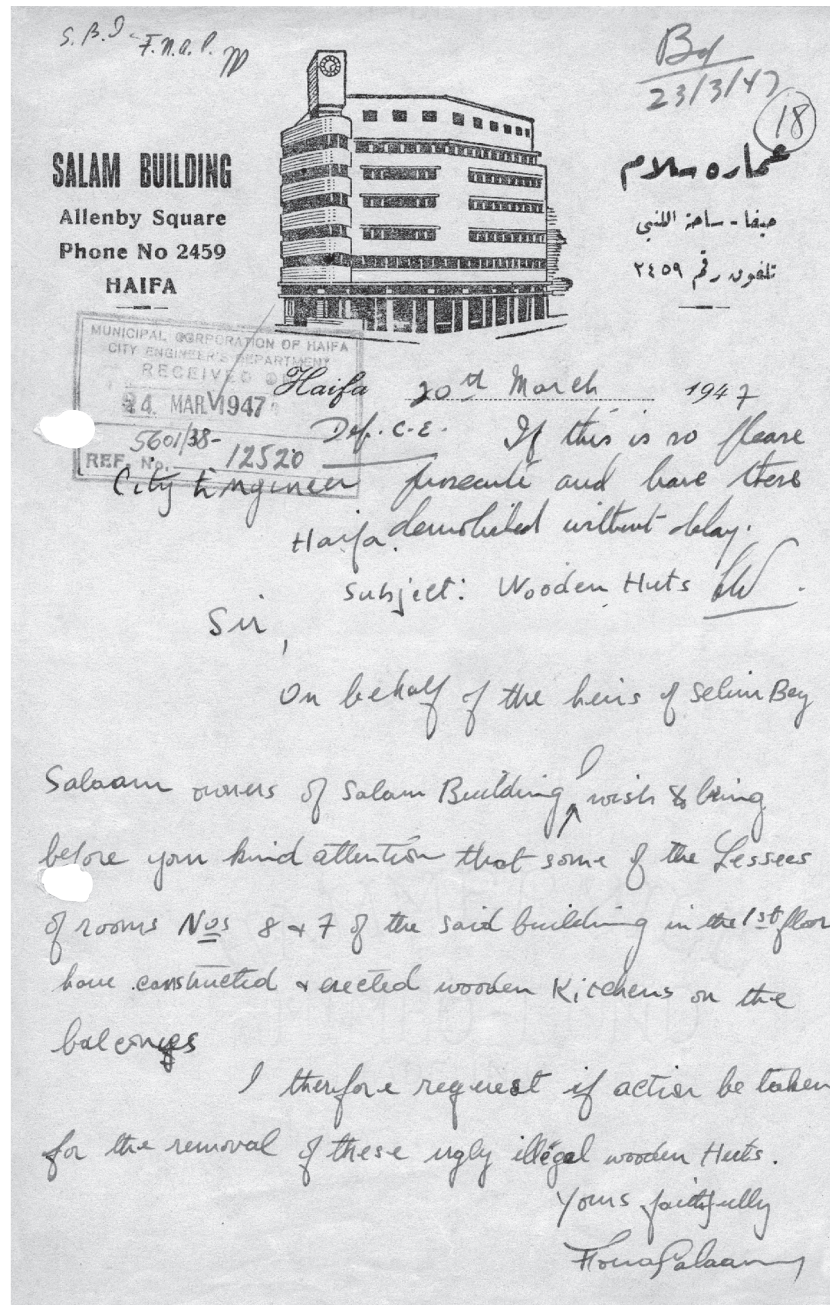 S.B.I.
F.n.a.P.
23/3/47
18
SALAM BUILDING
Allenby Square
Phone No 2459
HAIFA
عماره سلام
حيفا - ساحة اللنبي
تلفون رقم ٢٤٥٩
MUNICIPAL CORPORATION OF HAIFA
CITY ENGINEER'S DEPARTMENT
RECEIVED
24. MAR. 1947
5601/38-
REF. No. 12520
Haifa 20th March 1947
Dep. C.E. If this is so please
prosecute and have these
demolished without delay.
City Engineer
Haifa.
Subject: Wooden Huts
Sir,
On behalf of the heirs of Selim Bey
Salaam owners of Salam Building I wish to bring
before your kind attention that some of the Lessees
of rooms Nos 8 & 7 of the said building in the 1st floor
have constructed & erected wooden Kitchens on the
balconys
I therefore request if action be taken
for the removal of these ugly illegal wooden Huts.
Yours faithfully